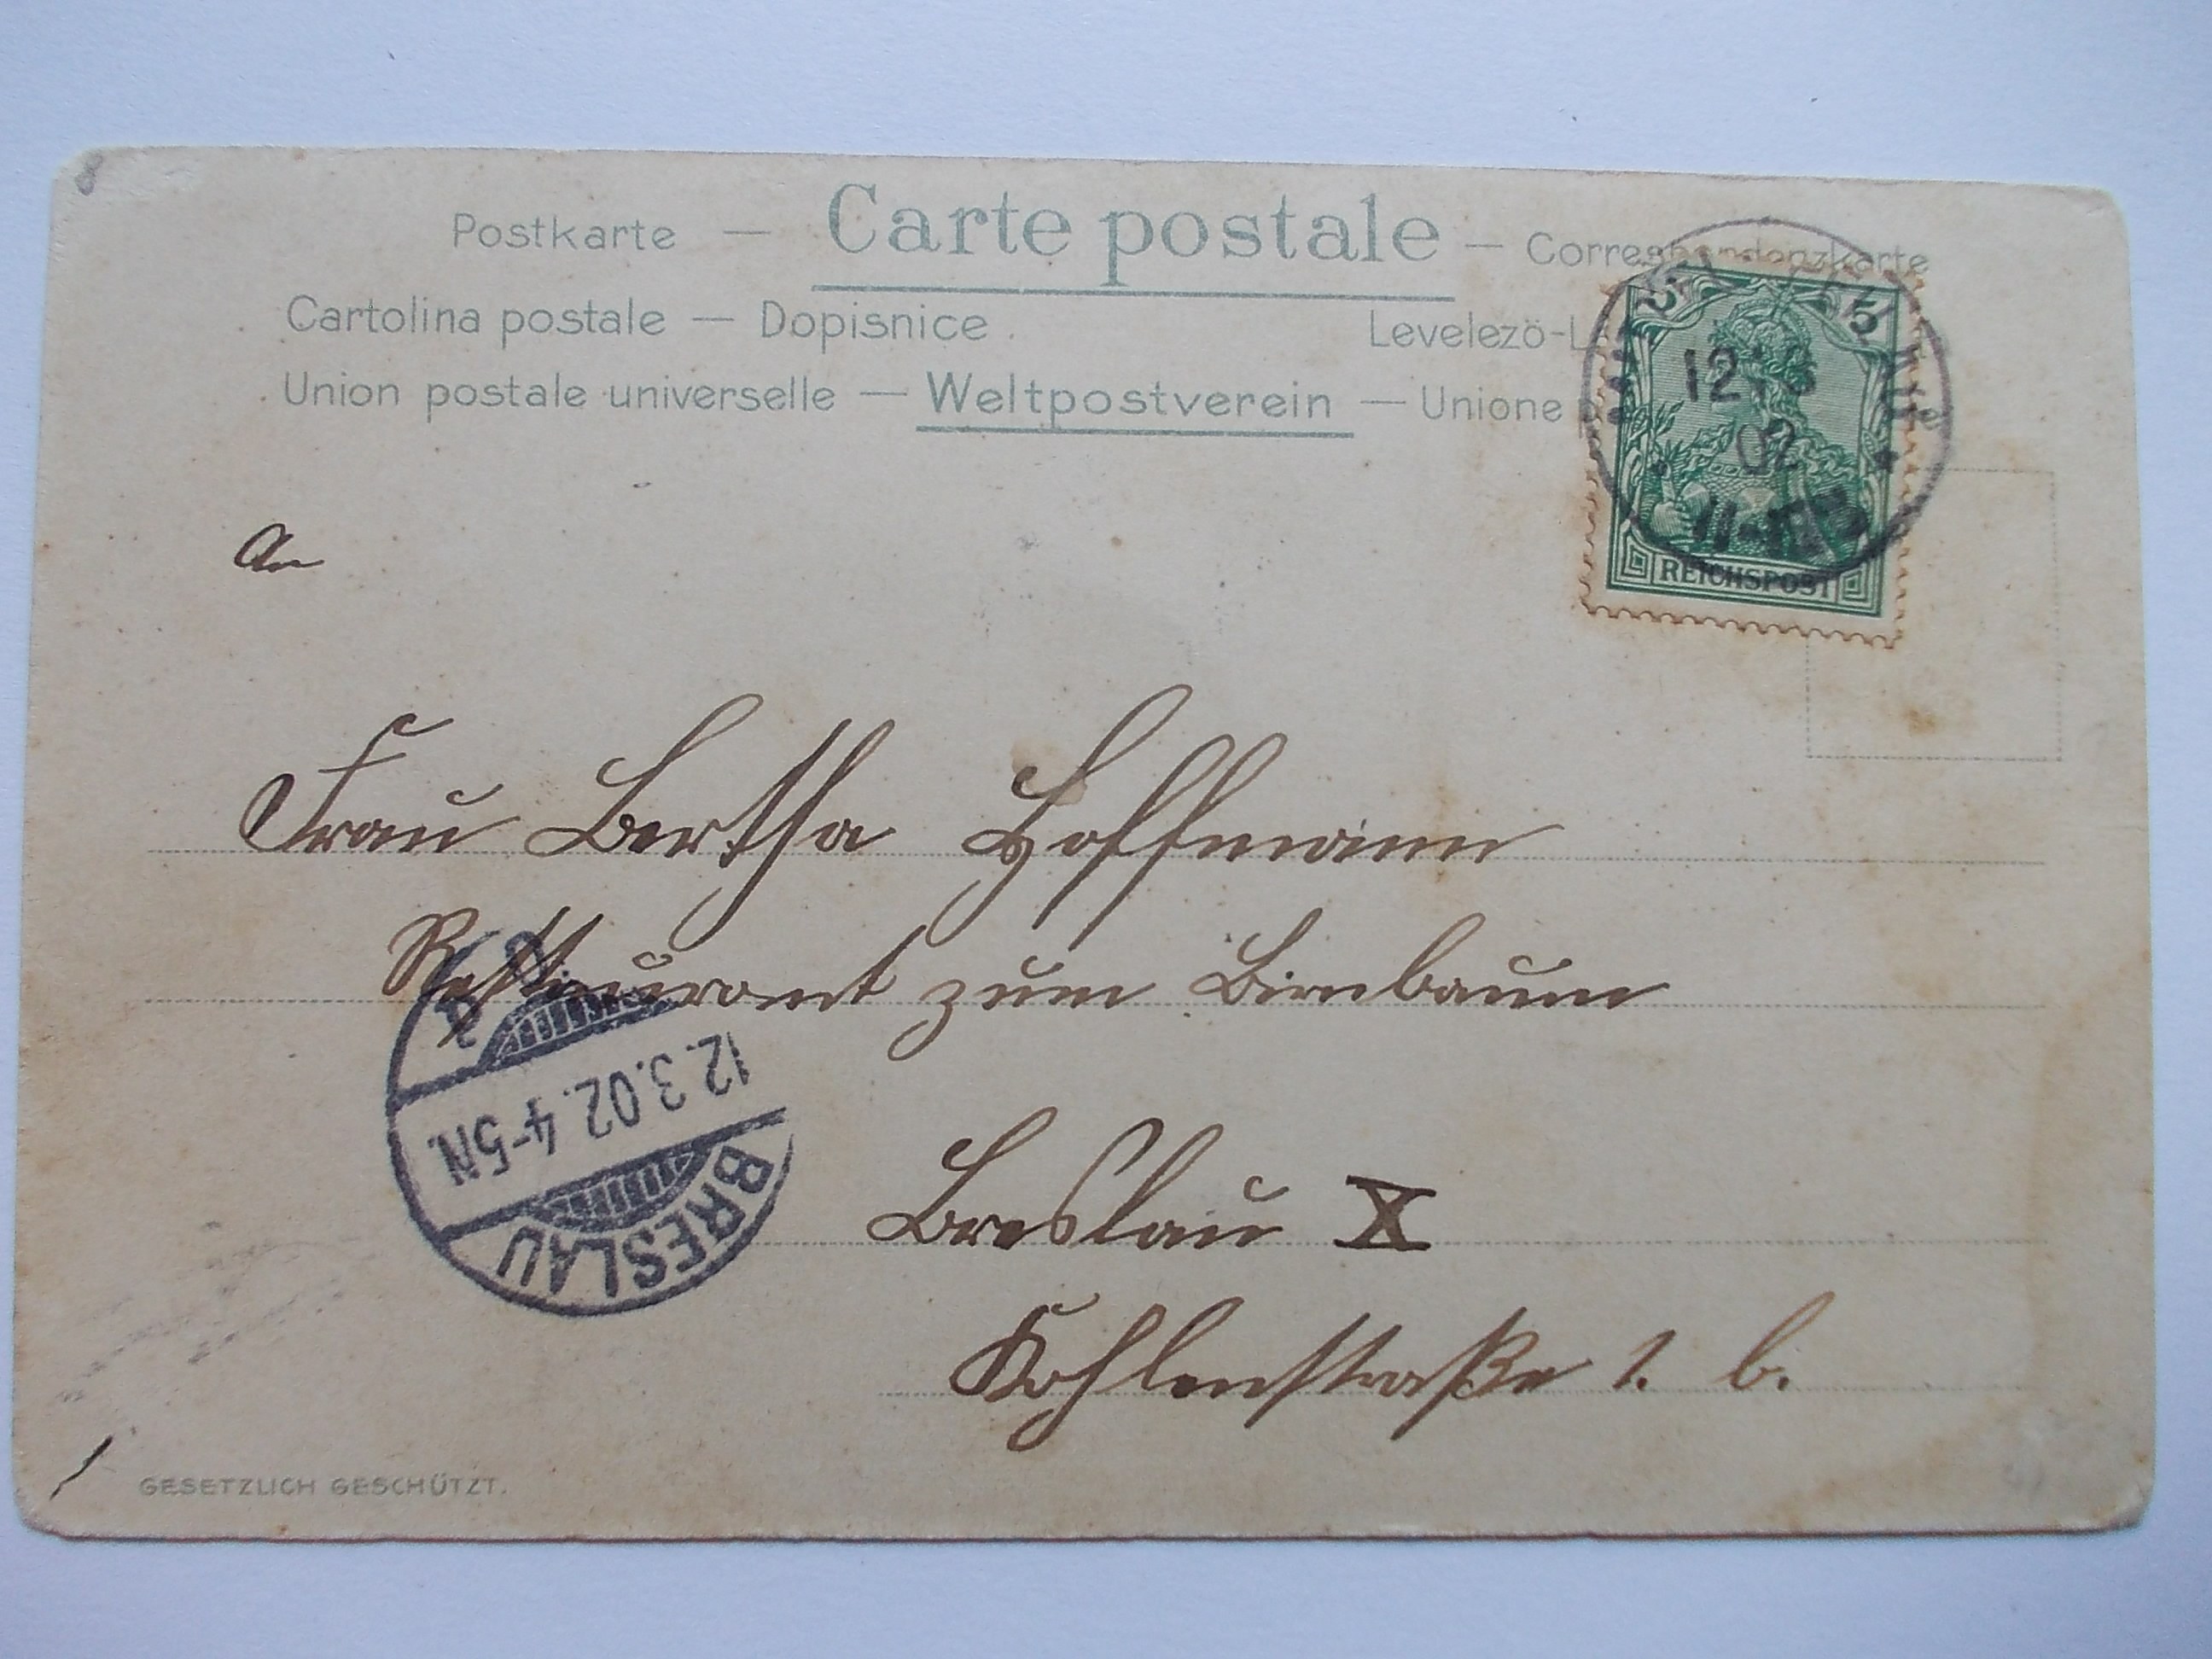 Postkarte — Carte postale — Correspondenzkarte
Cartolina postale — Dopisnice Levelezö-L
Union postale universelle — Weltpostverein — Unione
5 5
12 3
02
11-12
REICHSPOST
An
Frau Bertha Hoffmann
Restaurant zum Birnbaum
12.3.02.4-5N.
BRESLAU
Breslau X
Kohlenstraße 1. b.
GESETZLICH GESCHÜTZT.